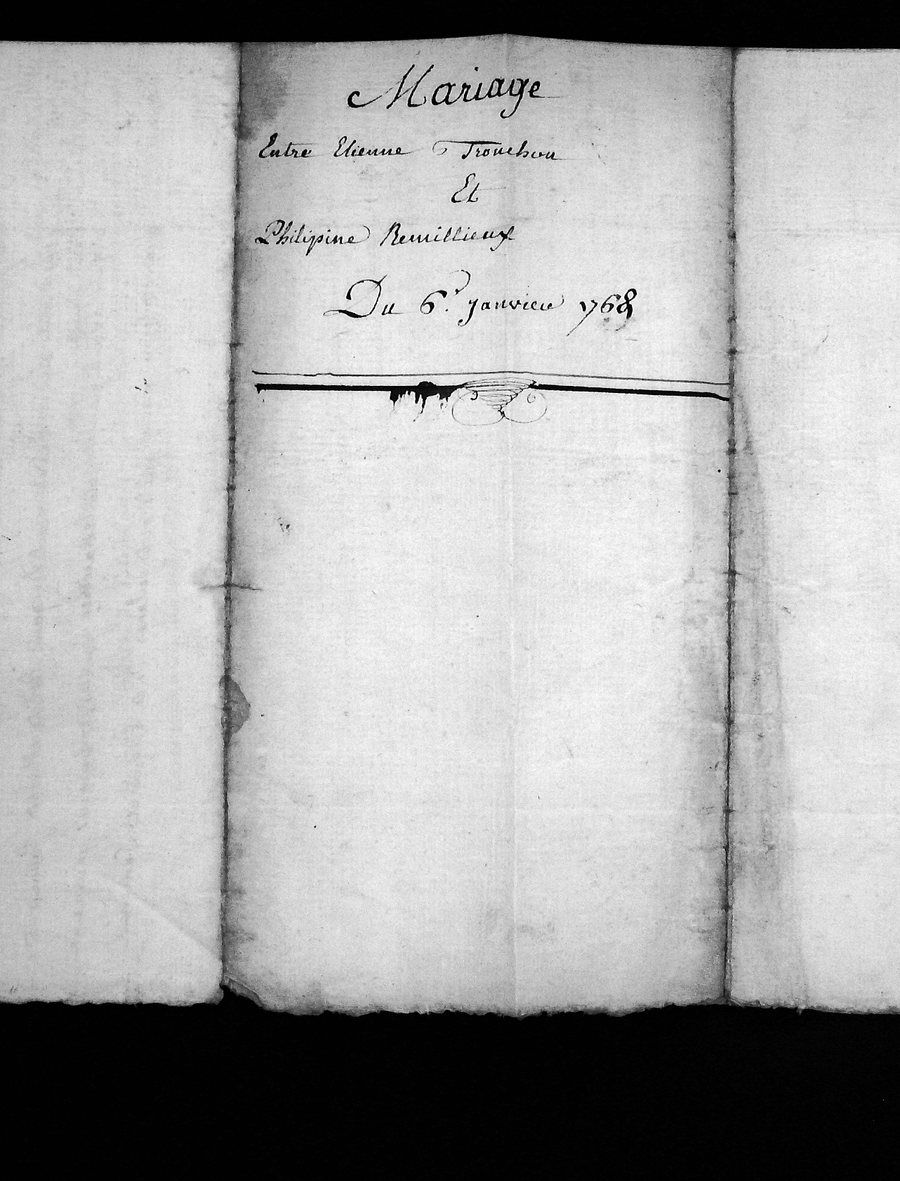 Mariage
Entre Etienne Tronchon
Et
Philipine Remillieux
Du 6.r janvier 1768